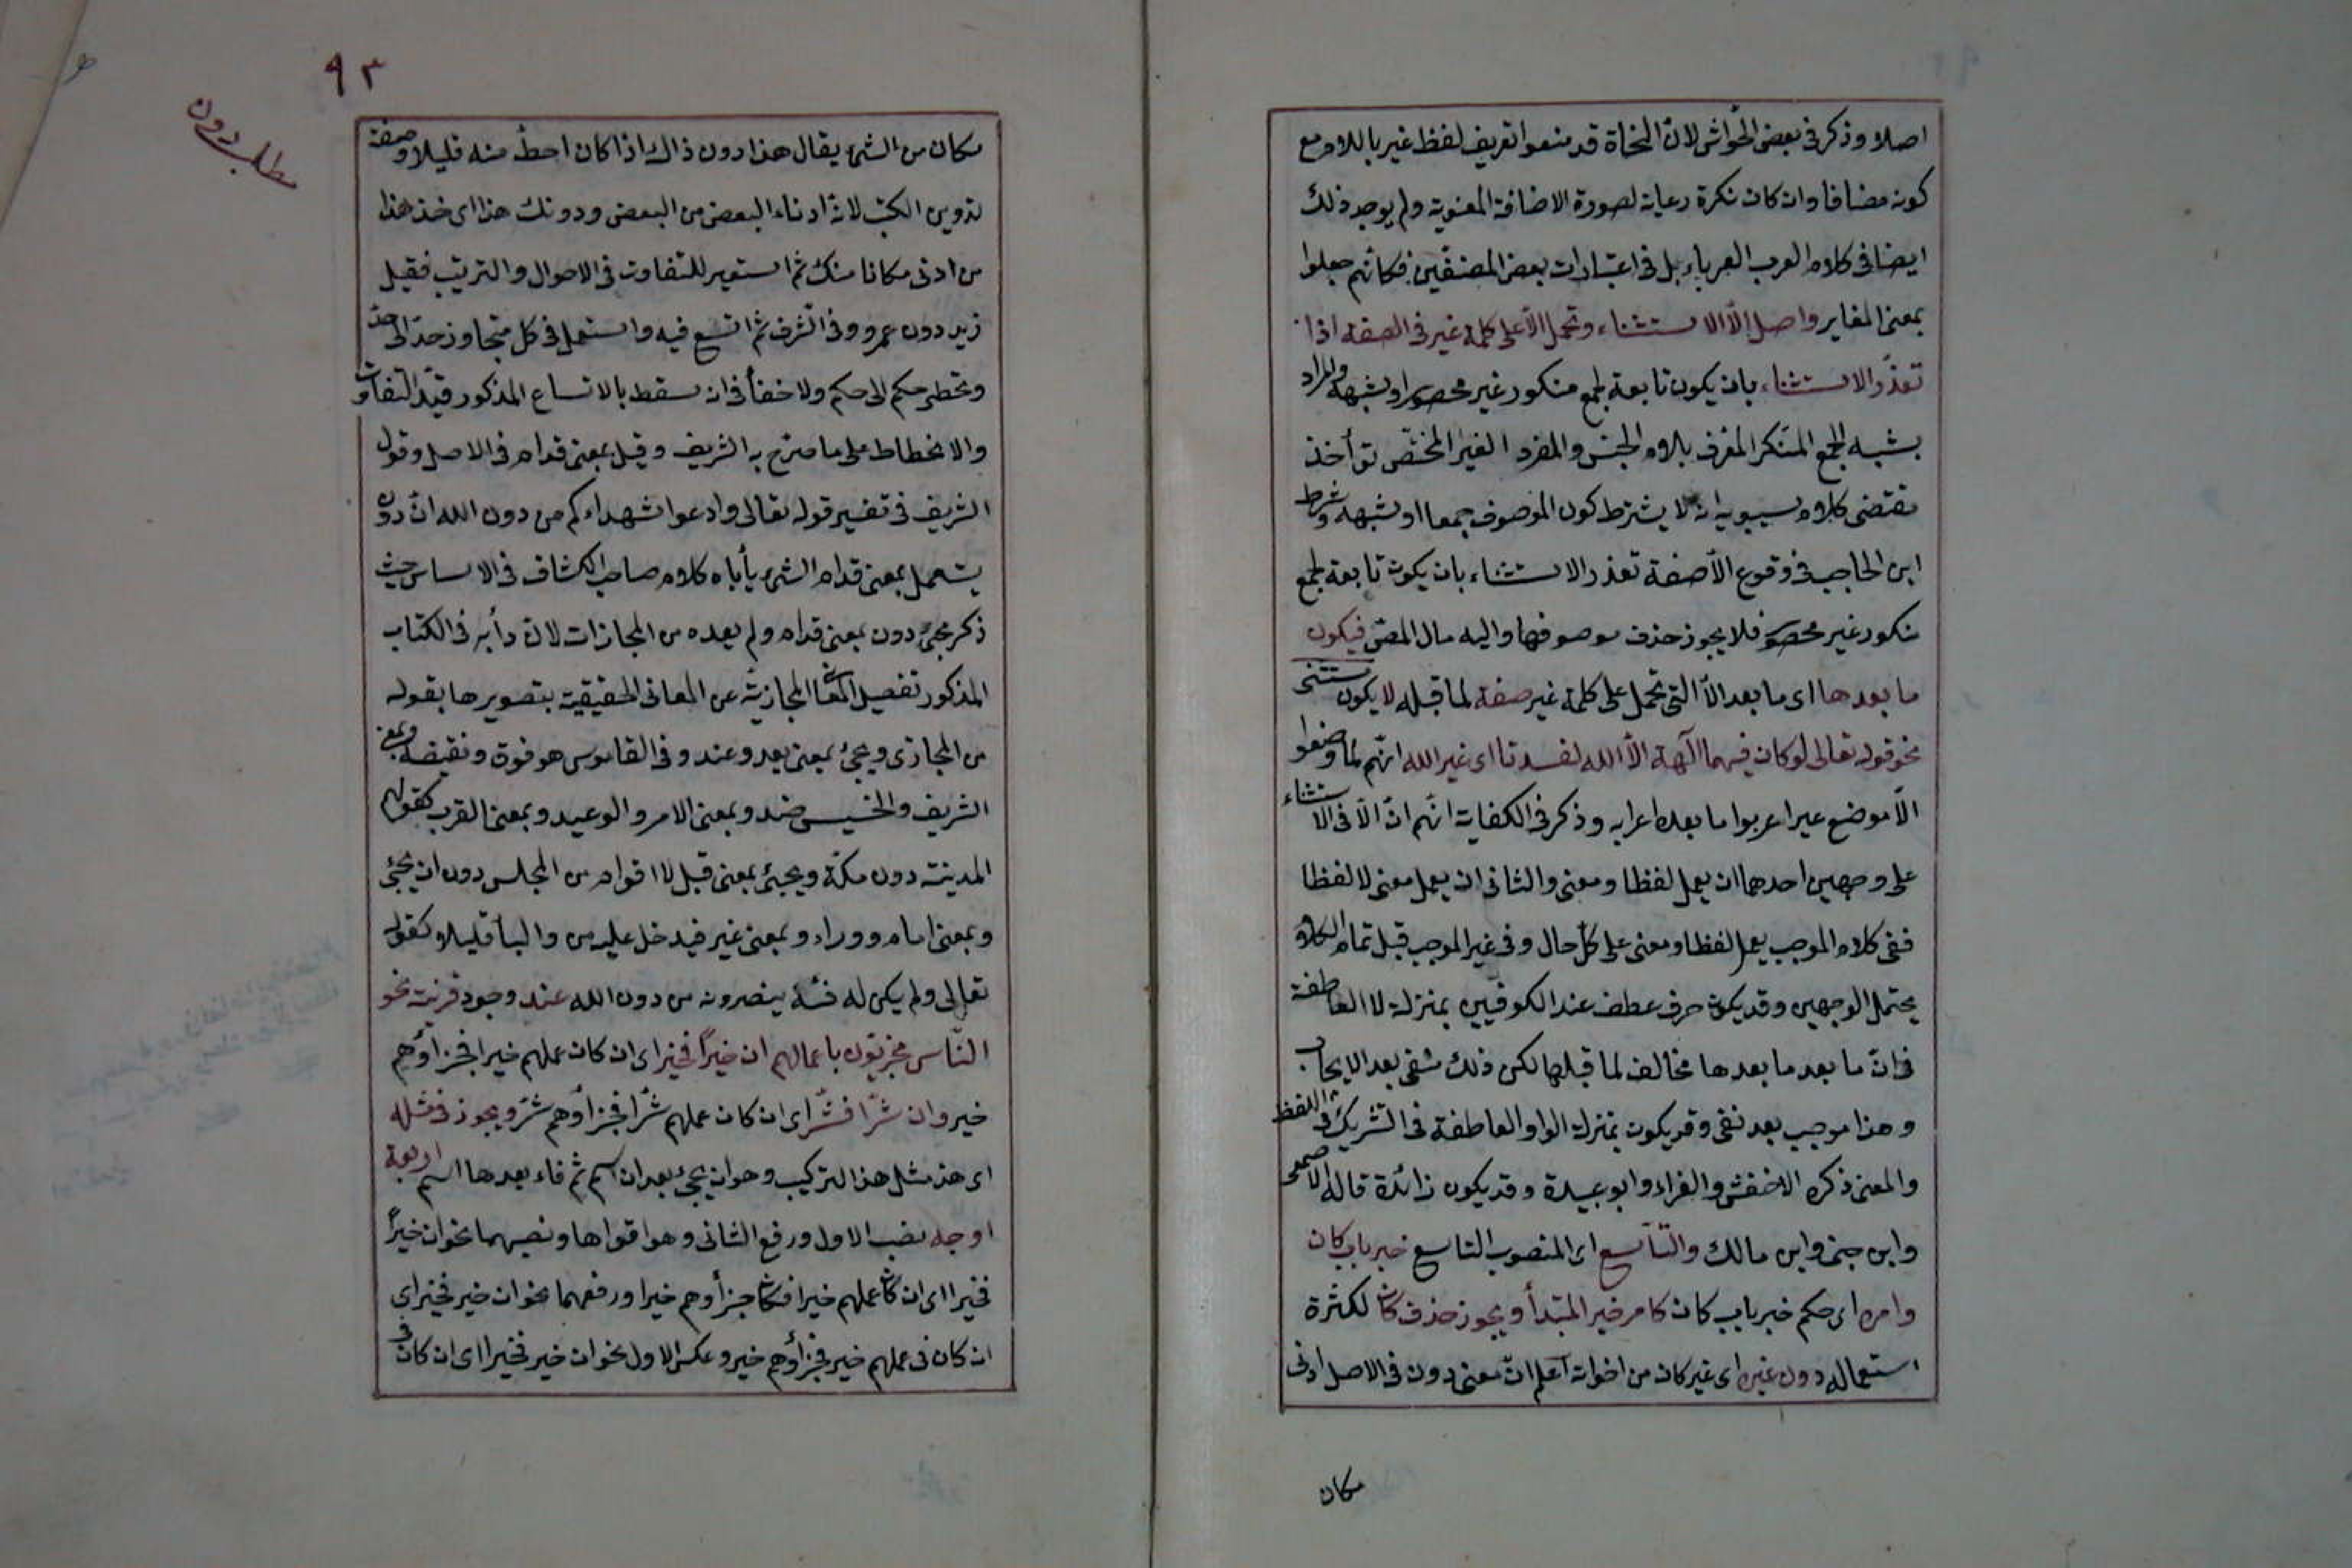 اصلا وذكر فى بعض الحواشى لانّ النحاة قد منعوا تعريف لفظ غير باللام مع
كونه مضافا وان كان نكرة رعاية لصورة الاضافة المعنوية ولم يوجد ذلك
ايضا فى كلام العرب العرباء بل فى اعتبارات بعض المصنفين فكانهم جعلوا
بمعنى المغاير واصل الّا الاستثناء وتحمل الّا على كلمة غير فى الصفة اذا
تعذّر الاستثناء بان يكون تابعة لجمع منكور غير محصور او شبهه والمراد
بشبه الجمع المنكر المعرف بلام الجنس والمفرد الغير المختصّ
مقتضى كلام سيبويه انه لا يشترط كون الموصوف جمعا او شبهه وشرط
ابن الحاجب فى وقوع الّا صفة تعذر الاستثناء بان يكون تابعة لجمع
منكور غير محصور فلا يجوز حذف موصوفها واليه مال المص فيكون
ما بعدها اى ما بعد الّا التى تحمل على كلمة غير صفة لما قبله لا يكون مستثنى
نحو قوله تعالى لو كان فيهما آلهة الّا الله لفسدتا اى غير الله انهم لما وضعوا
الّا موضع غير اعربوا ما بعده اعرابه وذكر فى الكفاية انهم انّ الّا فى الاستثناء
على وجهين احدهما ان يعمل لفظا ومعنى والثانى ان يعمل معنى لا لفظا
ففى كلام الموجب يعمل لفظا ومعنى على كل حال وفى غير الموجب قبل تمام الكلام
يحتمل الوجهين وقد يكون حرف عطف عند الكوفيين بمنزلة لا العاطفة
فى انّ ما بعد ما بعدها مخالف لما قبلها لكن ذلك منفى بعد الايجاب
وهذا موجب بعد نفى وقد يكون بمنزلة الواو العاطفة فى التشريك فى اللفظ
والمعنى ذكره الاخفش والفراء وابو عبيدة وقد يكون زائدة قاله الاصمعى
وابن جنى وابن مالك والتاسع اى المنصوب التاسع خبر باب كان
وامره اى حكم خبر باب كان كامر خبر المبتدأ ويجوز حذف كان لكثرة
استعماله دون غيره اى غير كان من اخواته اعلم انّ معنى دون فى الاصل ادنى
مكان
٩٣
مطلب دون
مكان من الشئ يقال هذا دون ذاك اذا كان احطّ منه قليلا وصفة
تدوين الكتب لانه ادناء البعض من البعض ودونك هذا اى خذ هذا
من ادنى مكانا منك ثم استعير للتفاوت فى الاحوال والترتيب فقيل
زيد دون عمرو وفى الشرف ثم اتسع فيه واستعمل فى كل متجاوز حدّ الى حدّ
وتخطى حكم الى حكم ولا خفأ فى ان سقط بالاتساع المذكور قيد التفاوت
والانحطاط على ما صرّح به الشريف وقيل بمعنى قدام فى الاصل وقول
الشريف فى تفسير قوله تعالى وادعوا شهداءكم من دون الله انّ دون
يستعمل بمعنى قدام الشئ يأباه كلام صاحب الكشاف فى الاساس حيث
ذكر مجئ دون بمعنى قدام ولم يعده من المجازات لان دأبه فى الكتاب
المذكور تفصيل المعانى المجازية عن المعانى الحقيقية بتصويرها بقوله
من المجازى ويجئ بمعنى بعد وعند وفى القاموس هو فوق ونقيضه وبمعنى
الشريف والخسيس ضد وبمعنى الامر والوعيد وبمعنى القرب كقولهم
المدينة دون مكة ويجئ بمعنى قبل لا اقوام من المجلس دون ان يجئ
وبمعنى امام ووراء وبمعنى غير فيدخل عليه من والباء قليلا كقوله
تعالى ولم يكن له فئة ينصرونه من دون الله عند وجود قرينة نحو
النّاس مجزيّون باعمالهم ان خيرًا فخير اى ان كان عملهم خيرا فجزاؤهم
خير وان شرّا فشرّ اى ان كان عملهم شرّا فجزاؤهم شرّ ويجوز فى مثله
اى هذ مثل هذا التركيب وهو ان يجئ بعد ان اسم ثم فاء بعدها اسم اربعة
اوجه نصب الاول ورفع الثانى وهو اقواها ونصبهما نحو ان خيرًا
فخيرا اى ان كان عملهم خيرا فكان جزاؤهم خيرا ورفعهما نحو ان خير فخير اى
ان كان فى عملهم خير فجزاؤهم خير وعكس الاول نحو ان خير فخيرا اى ان كان فى